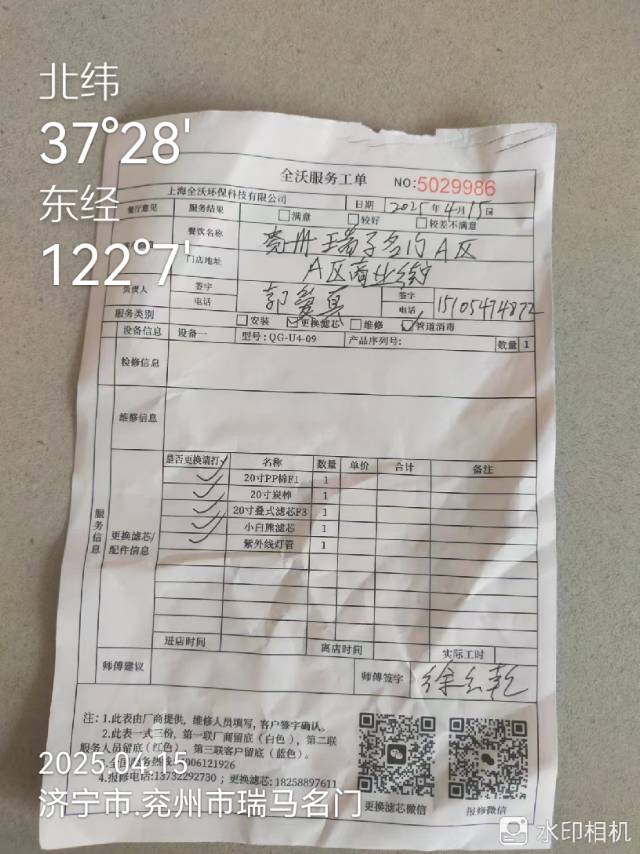 北纬
37°28'
东经
122°7'
全沃服务工单 NO:5029986
上海全沃环保科技有限公司 日期 2025年4月15日
餐厅意见 服务结果 满意 较好 较差不满意
餐饮名称
门店地址 A区商业街
负责人 签字 签字
电话 电话 15105474872
服务类别 安装 更换滤芯 维修 管道消毒
设备信息 设备一 型号:QG-U4-09 产品序列号: 数量 1
检修信息
维修信息
服务信息
更换滤芯/配件信息
是否更换请打✓ 名称 数量 单价 合计 备注
✓ 20寸PP棉F1 1
✓ 20寸炭棒 1
✓ 20寸叠式滤芯F3 1
✓ 小白熊滤芯 1
✓ 紫外线灯管 1
进店时间 离店时间 实际工时
师傅建议 师傅签字
注:1.此表由厂商提供,维修人员填写,客户签字确认。
2.此表一式三份,第一联厂商留底(白色),第二联
服务人员留底(红色),第三联客户留底(蓝色)。
4.报修电话:13732292730;更换滤芯:18258897611
更换滤芯微信 报修微信
2025.04.15
济宁市.兖州市瑞马名门
水印相机